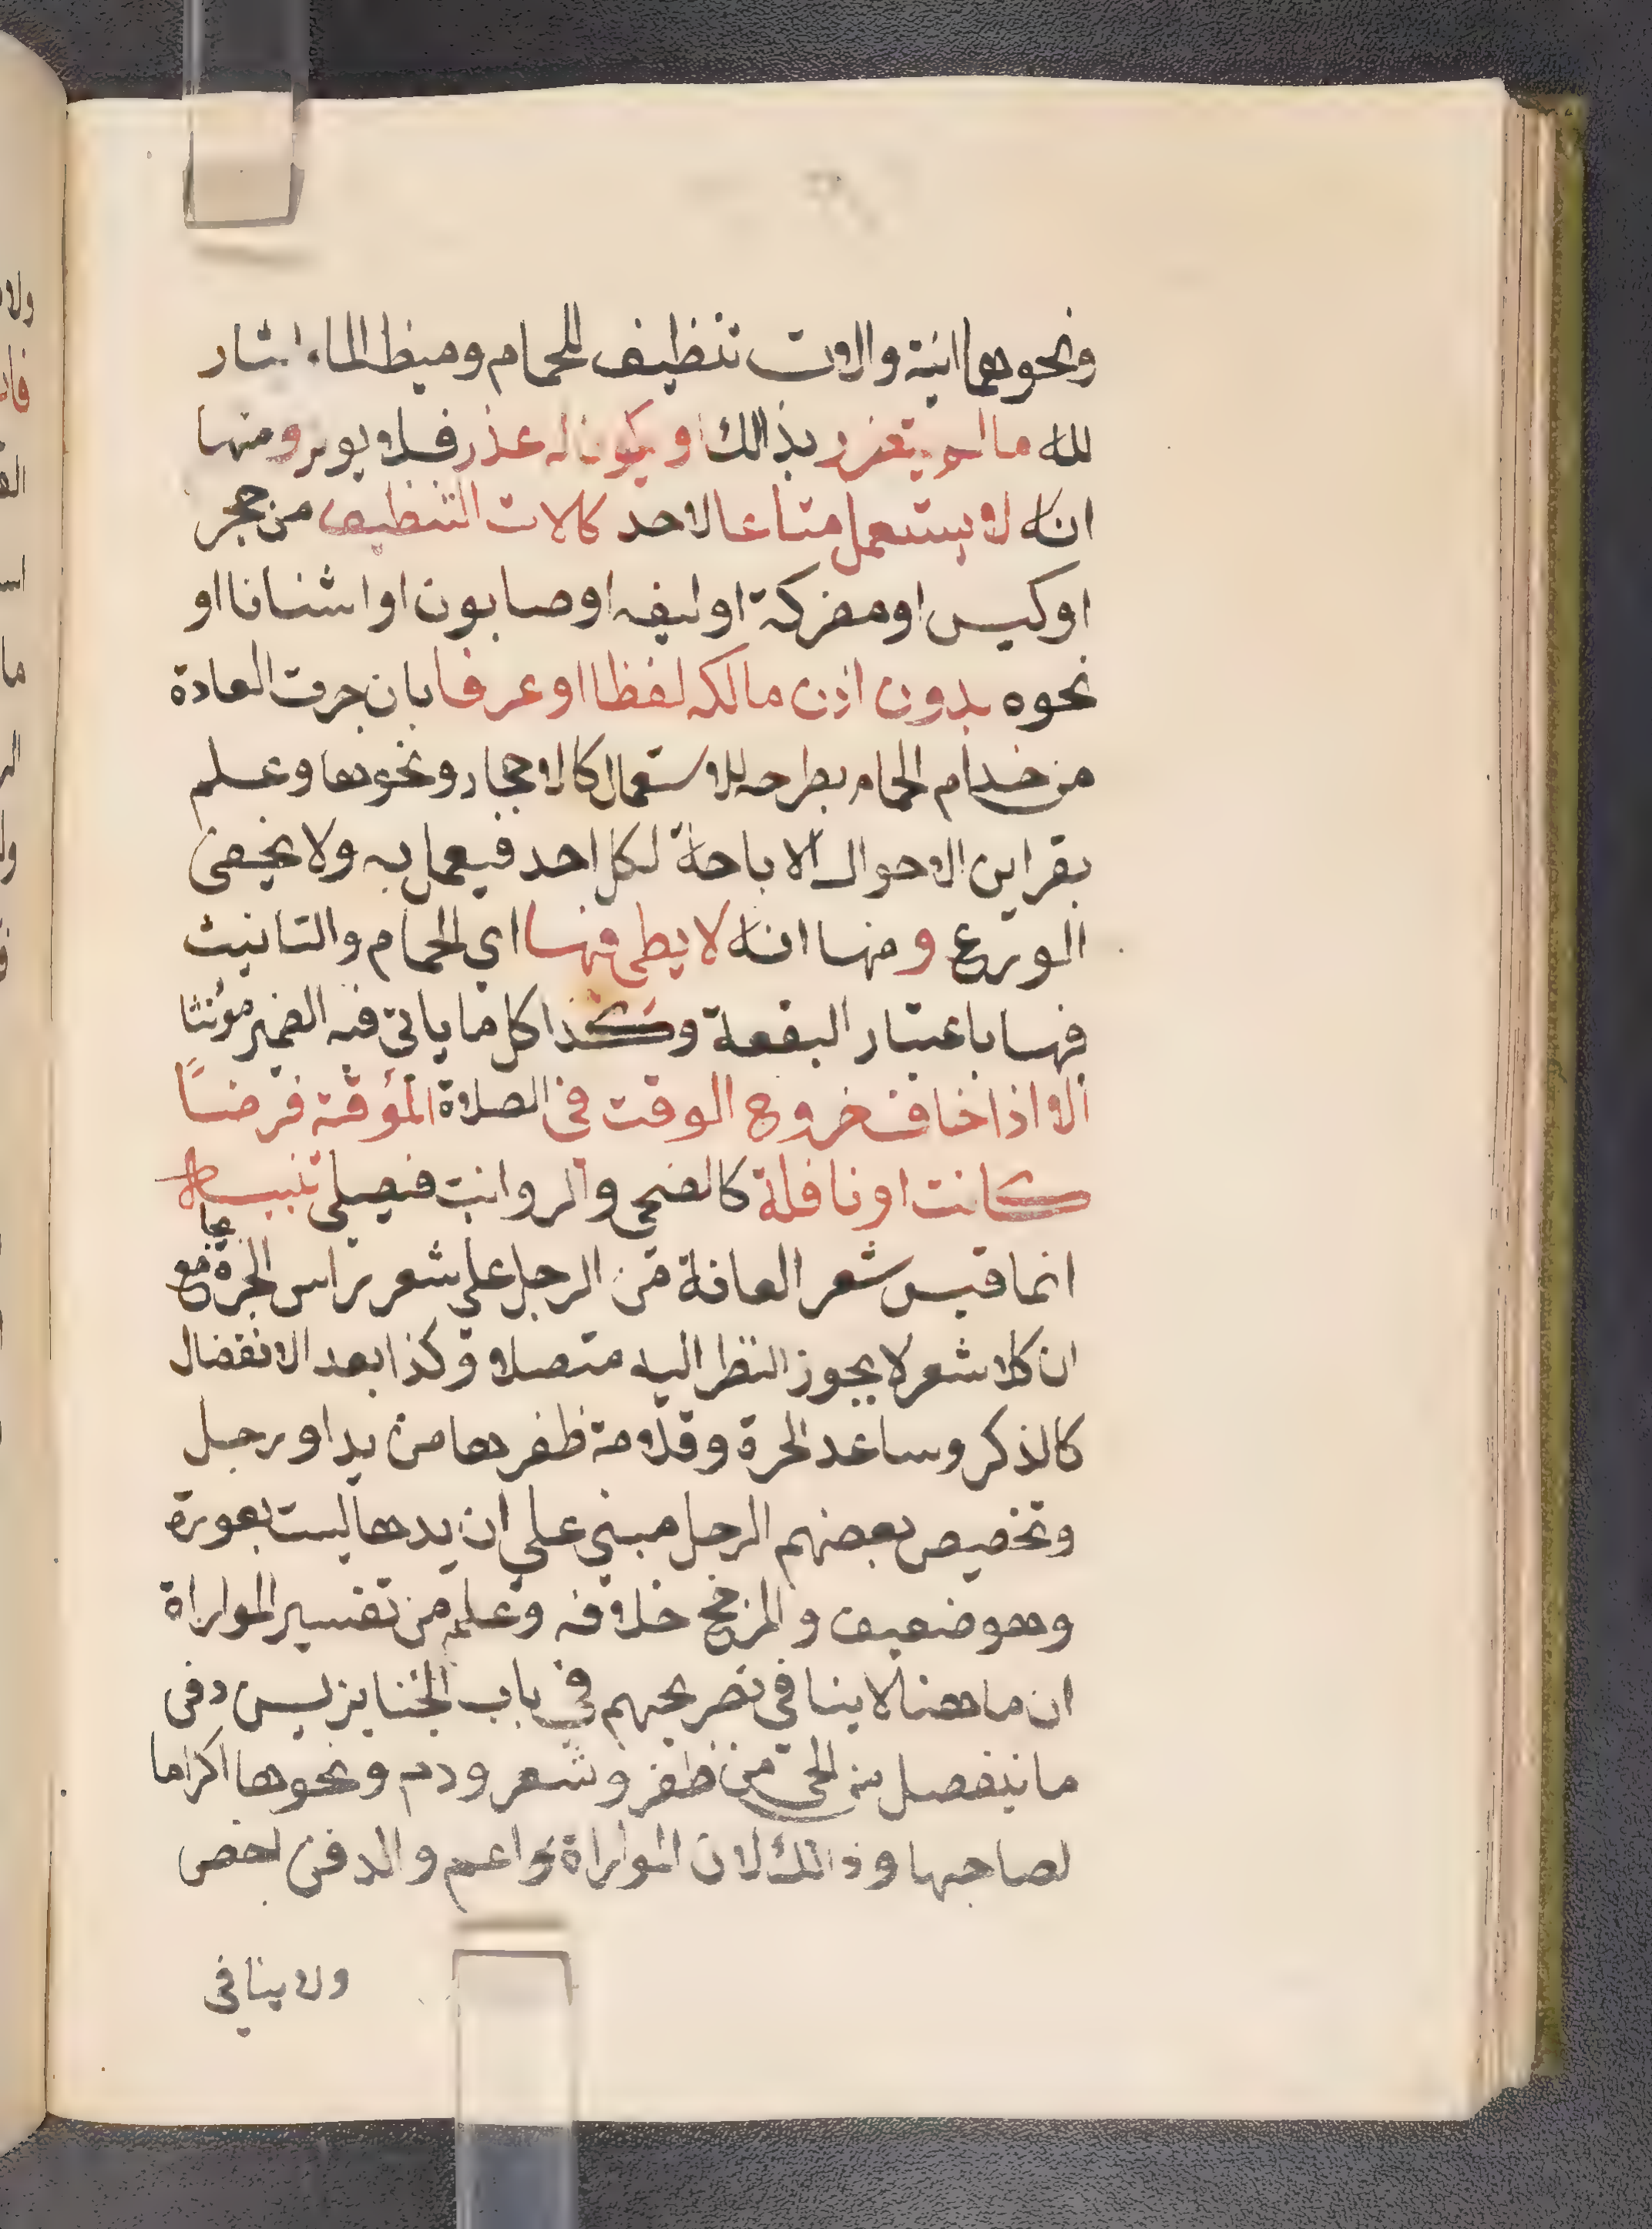 ونحوهما انية والات تنظيف للحمام وميظ الماء ايثار
لله ما لم يتضرر بذالك او يكون له عذر فلا يوثر ومنها
انه لا يستعمل متاعا لاحد كالات التنظيف من حجر
او كيس او مفركة او ليفه او صابون او اشنانا او
نحوه بدون اذن مالكه لفظا او عرفا بان جرت العادة
من خدام الحمام بطرحه للاستعمال كالاحجار ونحوها وعلم
بقراين الاحوال الاباحة لكل احد فيعمل به ولا يخفى
الورع ومنها انه لا يصلي فيها اي الحمام والتانيث
فيها باعتبار البقعة وكذا كل ما ياتي فيه الضمير مؤنثا
الا اذا خاف خروج الوقت في الصلاة المؤقتة فرضًا
كانت او نافلة كالضحى والرواتب فيصلي تنبيه
انما قيس شعر العانة من الرجل على شعر راس الحرة بجامع
ان كلا شعر لا يجوز النظر اليه متصلا وكذا بعد الانفضال
كالذكر وساعد الحرة وقلامة ظفرها من يد او رجل
وتخصيص بعضهم الرجل مبني على ان يدها ليست بعورة
وهو ضعيف والمرجح خلافه وعلم من تفسير المواراة
ان ما هنا لا ينافي تصريحهم في باب الجنايز بسن دفن
ما ينفصل من الحي من ظفر وشعر ودم ونحوها اكراما
لصاحبها وذالك لان المواراة اعم والدفن اخص
ولا ينافي